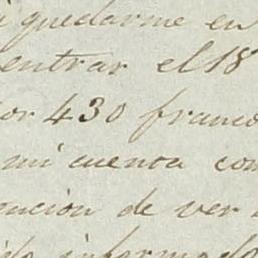 quedarme en
entrar el 18
or 430 franco
mi cuenta com
nución de ver
ido informado